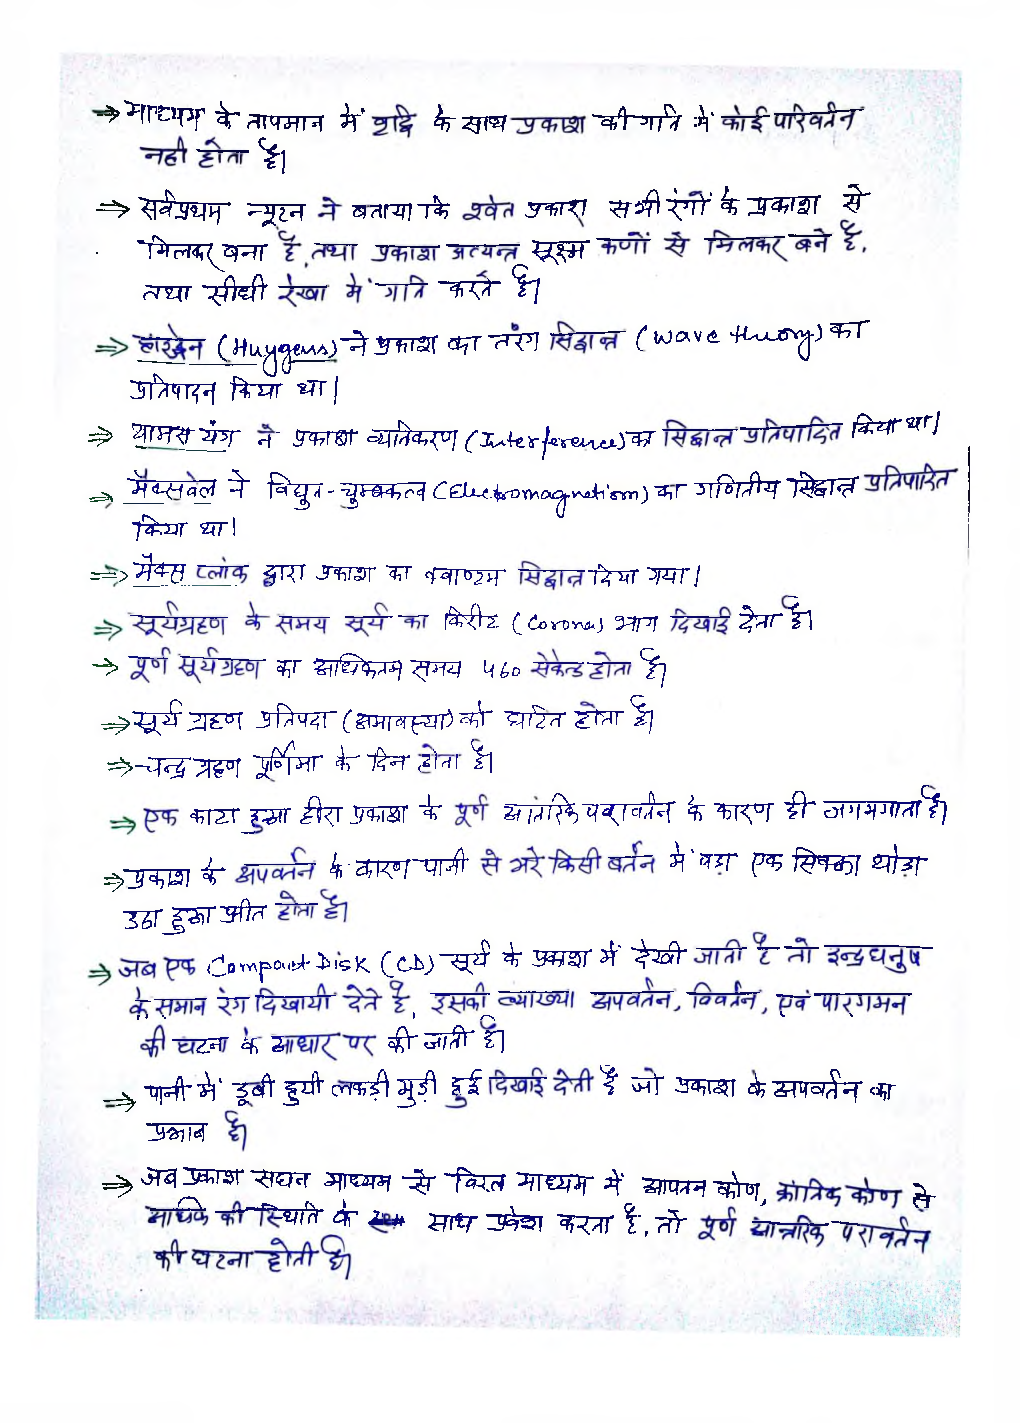 ⇒ माध्यम के तापमान में वृद्धि के साथ प्रकाश की गति में कोई परिवर्तन
नही होता है।
⇒ सर्वप्रथम न्यूटन ने बताया कि श्वेत प्रकाश सभी रंगों के प्रकाश से
मिलकर बना है, तथा प्रकाश अत्यन्त सूक्ष्म कणों से मिलकर बने है,
तथा सीधी रेखा में गति करते है।
⇒ हाइड्रेन (Huygens) ने प्रकाश का तरंग सिद्धान्त (wave theory) का
प्रतिपादन किया था।
⇒ थामस यंग ने प्रकाश व्यतिकरण (Interference) का सिद्धान्त प्रतिपादित किया था।
⇒ मैक्सवेल ने विद्युत-चुम्बकत्व (Electromagnetism) का गणितीय सिद्धान्त प्रतिपादित
किया था।
⇒ मैक्स प्लांक द्वारा प्रकाश का क्वाण्टम सिद्धान्त दिया गया।
⇒ सूर्यग्रहण के समय सूर्य का किरीट (Corona) भाग दिखाई देता है।
→ पूर्ण सूर्यग्रहण का अधिकतम समय 460 सेकेन्ड होता है।
⇒ सूर्य ग्रहण प्रतिपदा (अमावस्या) को घटित होता है।
⇒ चन्द्र ग्रहण पूर्णिमा के दिन होता है।
⇒ एक काटा हुआ हीरा प्रकाश के पूर्ण आंतरिक परावर्तन के कारण ही जगमगाता है।
⇒ प्रकाश के अपवर्तन के कारण पानी से भरे किसी बर्तन में पड़ा एक सिक्का थोड़ा
उठा हुआ प्रतीत होता है।
⇒ जब एक Compact Disk (CD) सूर्य के प्रकाश में देखी जाती है तो इन्द्रधनुष
के समान रंग दिखायी देते है, इसकी व्याख्या अपवर्तन, विवर्तन, एवं पारगमन
की घटना के आधार पर की जाती है।
⇒ पानी में डूबी हुयी लकड़ी मुड़ी हुई दिखाई देती है जो प्रकाश के अपवर्तन का
प्रभाव है।
⇒ जब प्रकाश सघन माध्यम से विरल माध्यम में आपतन कोण, क्रांतिक कोण से
अधिक की स्थिति के साथ प्रवेश करता है, तो पूर्ण आन्तरिक परावर्तन
की घटना होती है।